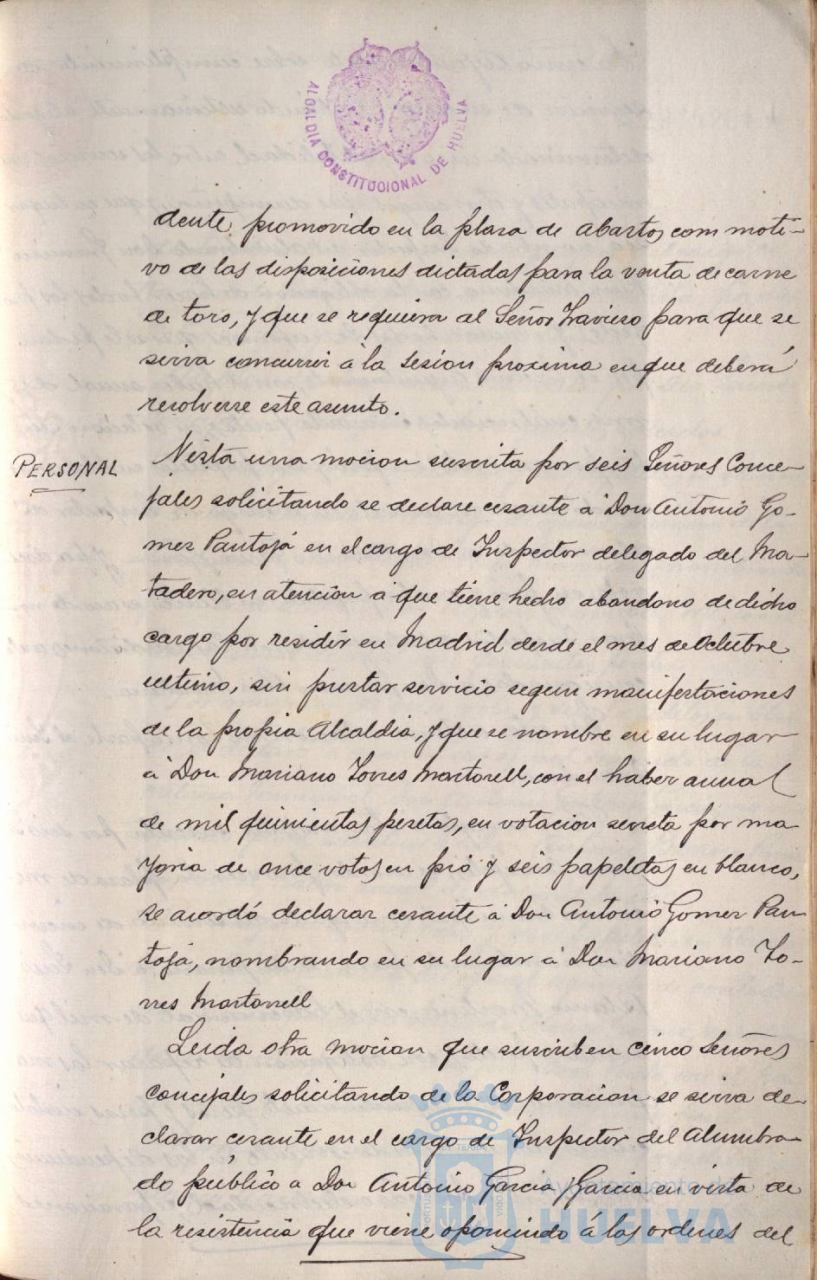 ALCALDIA CONSTITUCIONAL DE HUELVA
dente, promovido en la plaza de Abastos con moti-
vo de las disposiciones dictadas para la venta de carne
de toro, y que se requiera al Señor Travieso para que se
sirva concurrir á la sesion proxima en que deberá
resolverse este asunto.
PERSONAL
Vista una mocion suscrita por seis Señores Conce-
jales solicitando se declare cesante á Don Antonio Go-
mez Pantoja en el cargo de Inspector delegado del Ma-
tadero, en atencion á que tiene hecho abandono de dicho
cargo por residir en Madrid desde el mes de Octubre
ultimo, sin prestar servicio segun manifestaciones
de la propia Alcaldia, y que se nombre en su lugar
á Don Mariano Torres Martorell, con el haber anual
de mil quinientas pesetas, en votacion secreta por ma
yoria de once votos en pró y seis papeletas en blanco,
se acordó declarar cesante á Don Antonio Gomez Pan
toja, nombrando en su lugar á Don Mariano To-
rres Martorell
Leida otra mocion que suscriben cinco Señores
concejales solicitando de la Corporacion se sirva de-
clarar cesante en el cargo de Inspector del Alumbra-
do público a Don Antonio Garcia y Garcia en vista de
la resistencia que viene oponiendo á las ordenes del
Ayuntamiento de
HUELVA